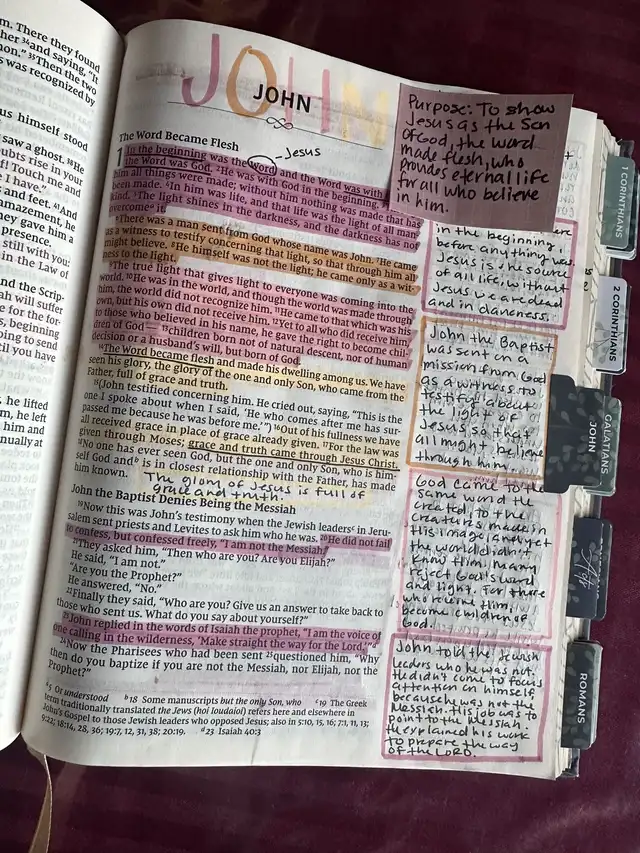 m. There they found
her ³⁴and saying, "It
mon." ³⁵Then the two
s was recognized by
us himself stood
saw a ghost. ³⁸He
ubts rise in your
f! Touch me and
I have."
s and feet. ⁴¹And
amazement, he
ey gave him a
presence.
still with you:
in the Law of
nd the Scrip-
ah will suffer
e for the for-
s, beginning
oing to send
til you have
, he lifted
m, he left
him and
nually at
JOHN
JOHN
The Word Became Flesh
- Jesus
1 In the beginning was the Word, and the Word was with
the Word was God. ²He was with God in the beginning.
him all things were made; without him nothing was made that has
been made. ⁴In him was life, and that life was the light of all man-
kind. ⁵The light shines in the darkness, and the darkness has not
overcome it.
⁶There was a man sent from God whose name was John. ⁷He came
as a witness to testify concerning that light, so that through him all
might believe. ⁸He himself was not the light; he came only as a wit-
ness to the light.
⁹The true light that gives light to everyone was coming into the
world. ¹⁰He was in the world, and though the world was made through
him, the world did not recognize him. ¹¹He came to that which was his
own, but his own did not receive him. ¹²Yet to all who did receive him,
to those who believed in his name, he gave the right to become chil-
dren of God— ¹³children born not of natural descent, nor of human
decision or a husband's will, but born of God.
¹⁴The Word became flesh and made his dwelling among us. We have
seen his glory, the glory of the one and only Son, who came from the
Father, full of grace and truth.
¹⁵(John testified concerning him. He cried out, saying, "This is the
one I spoke about when I said, 'He who comes after me has sur-
passed me because he was before me.'") ¹⁶Out of his fullness we have
all received grace in place of grace already given. ¹⁷For the law was
given through Moses; grace and truth came through Jesus Christ.
¹⁸No one has ever seen God, but the one and only Son, who is him-
self God and ᵇ is in closest relationship with the Father, has made
him known.
The glory of Jesus is full of
Grace and truth.
John the Baptist Denies Being the Messiah
¹⁹Now this was John's testimony when the Jewish leaders ᶜ in Jeru-
salem sent priests and Levites to ask him who he was. ²⁰He did not fail
to confess, but confessed freely, "I am not the Messiah."
²¹They asked him, "Then who are you? Are you Elijah?"
He said, "I am not."
"Are you the Prophet?"
He answered, "No."
²²Finally they said, "Who are you? Give us an answer to take back to
those who sent us. What do you say about yourself?"
²³John replied in the words of Isaiah the prophet, "I am the voice of
one calling in the wilderness, 'Make straight the way for the Lord.'" ᵈ
²⁴Now the Pharisees who had been sent ²⁵questioned him, "Why
then do you baptize if you are not the Messiah, nor Elijah, nor the
Prophet?"
ᵃ5 Or understood ᵇ18 Some manuscripts but the only Son, who ᶜ19 The Greek
term traditionally translated the Jews (hoi Ioudaioi) refers here and elsewhere in
John's Gospel to those Jewish leaders who opposed Jesus; also in 5:10, 15, 16; 7:1, 11, 13;
9:22; 18:14, 28, 36; 19:7, 12, 31, 38; 20:19. ᵈ23 Isaiah 40:3
Purpose: To show
Jesus as the Son
of God, the word
made flesh, who
provides eternal life
for all who believe
in him.
in the beginning,
before anything was
Jesus is the source
of all life, without
Jesus we are dead
and in darkness.
John the Baptist
was sent on a
mission from God
as a witness to
testify about
the light of
Jesus so that
all might believe
through him.
God came to the
same world he
created to the
creatures made in
His image, and yet
the world didn't
know him. many
reject God's word
and light. For those
who receive Him,
become children of
God.
John told the Jewish
leaders who he was not.
He didn't come to focus
attention on himself
because was not the
Messiah. His job was to
point to the Messiah.
He explained his work
to prepare the way
of the LORD.
1 CORINTHIANS
2 CORINTHIANS
GALATIANS
JOHN
Acts
ROMANS